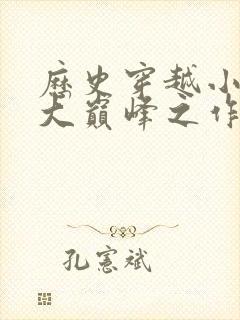 历史穿越小
大巅峰之作
孔宪斌